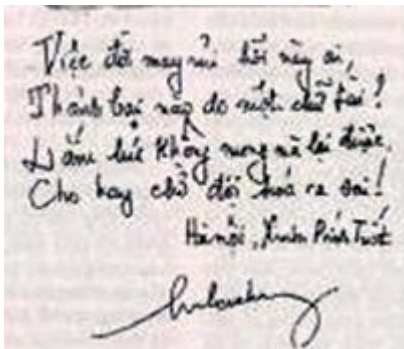 Việc đời may rủi hỏi này ai,
Thành bại nào do một chữ tài!
Lắm lúc không mong mà lại được,
Cho hay chữ đợi hóa ra sai!
Hà nội, Xuân Bính Tuất